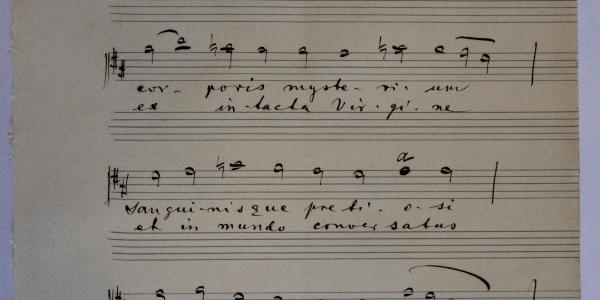 cor- poris myste- ri- um
ex in-tacta Vir-gi-ne
a
Sangui-nisque preti- o-si
et in mundo conversatus